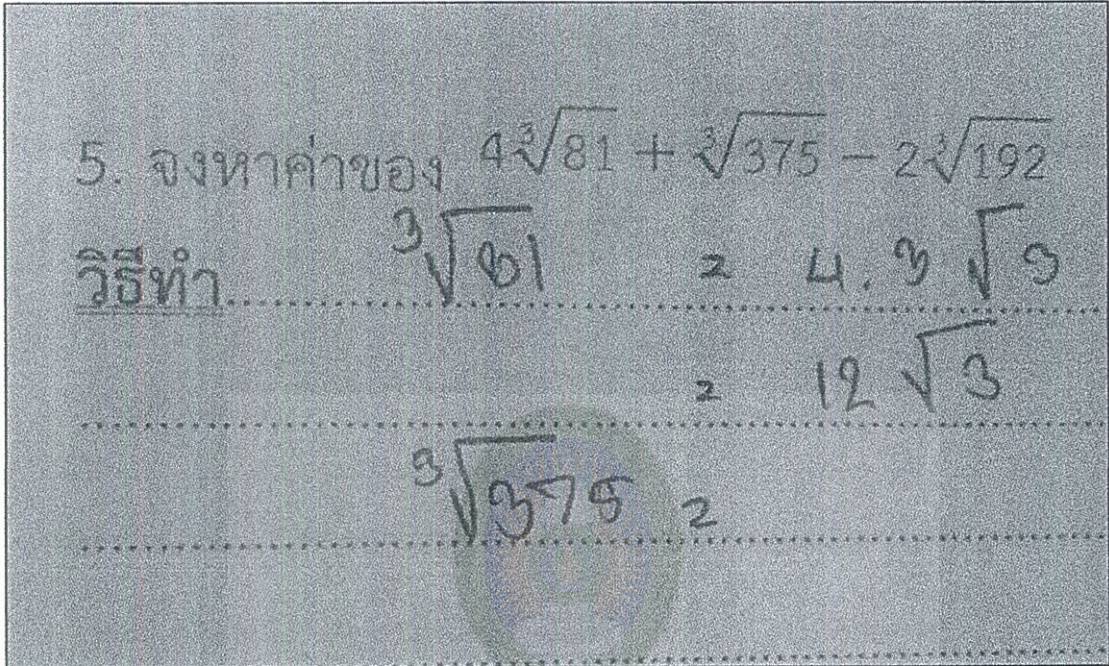 5. จงหาค่าของ 4∛81 + ∛375 − 2∛192
วิธีทำ ∛81 = 4.3 √3
= 12 √3
∛375 =